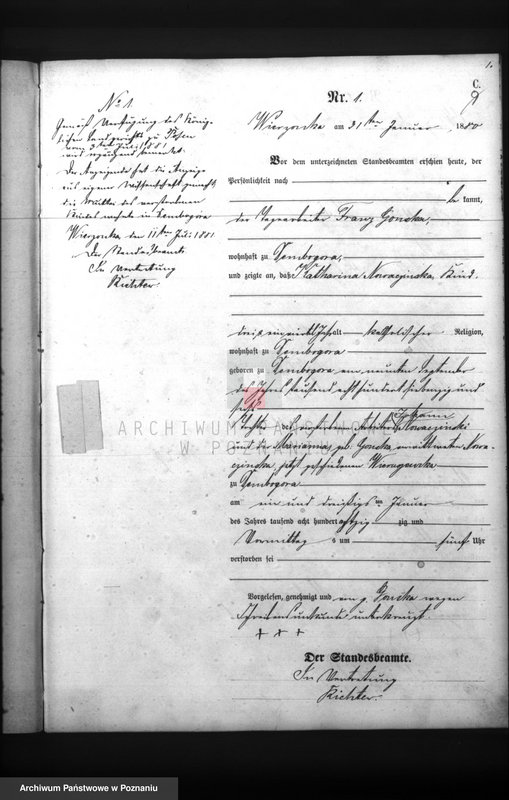 1.
C.
9
No 1
Gemäß Verfügung des König-
lichen Landgerichts zu Posen
vom 3ten Juli 1881
wird ergänzend
Der Anzeigende hat die Anzeige
aus eigener Wissenschaft gemacht,
die Mutter des verstorbenen
Kindes wohnte in Dembogora
Wierzonka den 11ten Juli 1881
Der Standesbeamte
In Vertretung
Richter.
Nr. 1.
Wierzonka am 31ten Januar 1880
Vor dem unterzeichneten Standesbeamten erschien heute, der
Persönlichkeit nach
be kannt,
der Tagearbeiter Franz Goncka,
wohnhaft zu Dembogora,
und zeigte an, daß Katharina Nowaczinska, Kind.
drei einviertel Jahr alt katholischer Religion,
wohnhaft zu Dembogora
geboren zu Dembogora am neunten September
des Jahres tausend acht hundert siebenzig und
sechs
Tochter des verstorbenen Arbeiters Johann Nowaczinski
und der Marianna, geb. Goncka verwittweten Nowa-
czinska, jetzt
zu Dembogora
am ein und dreißigs ten Januar
des Jahres tausend acht hundert achtzig zig und
Vormittag s um fünf Uhr
verstorben sei
Vorgelesen, genehmigt und von p. Goncka wegen
Schreibensunkunde unterkreuzt
+ + +
Der Standesbeamte.
In Vertretung
Richter.
ARCHIWUM PAŃSTWOWE
W POZNANIU
Archiwum Państwowe w Poznaniu